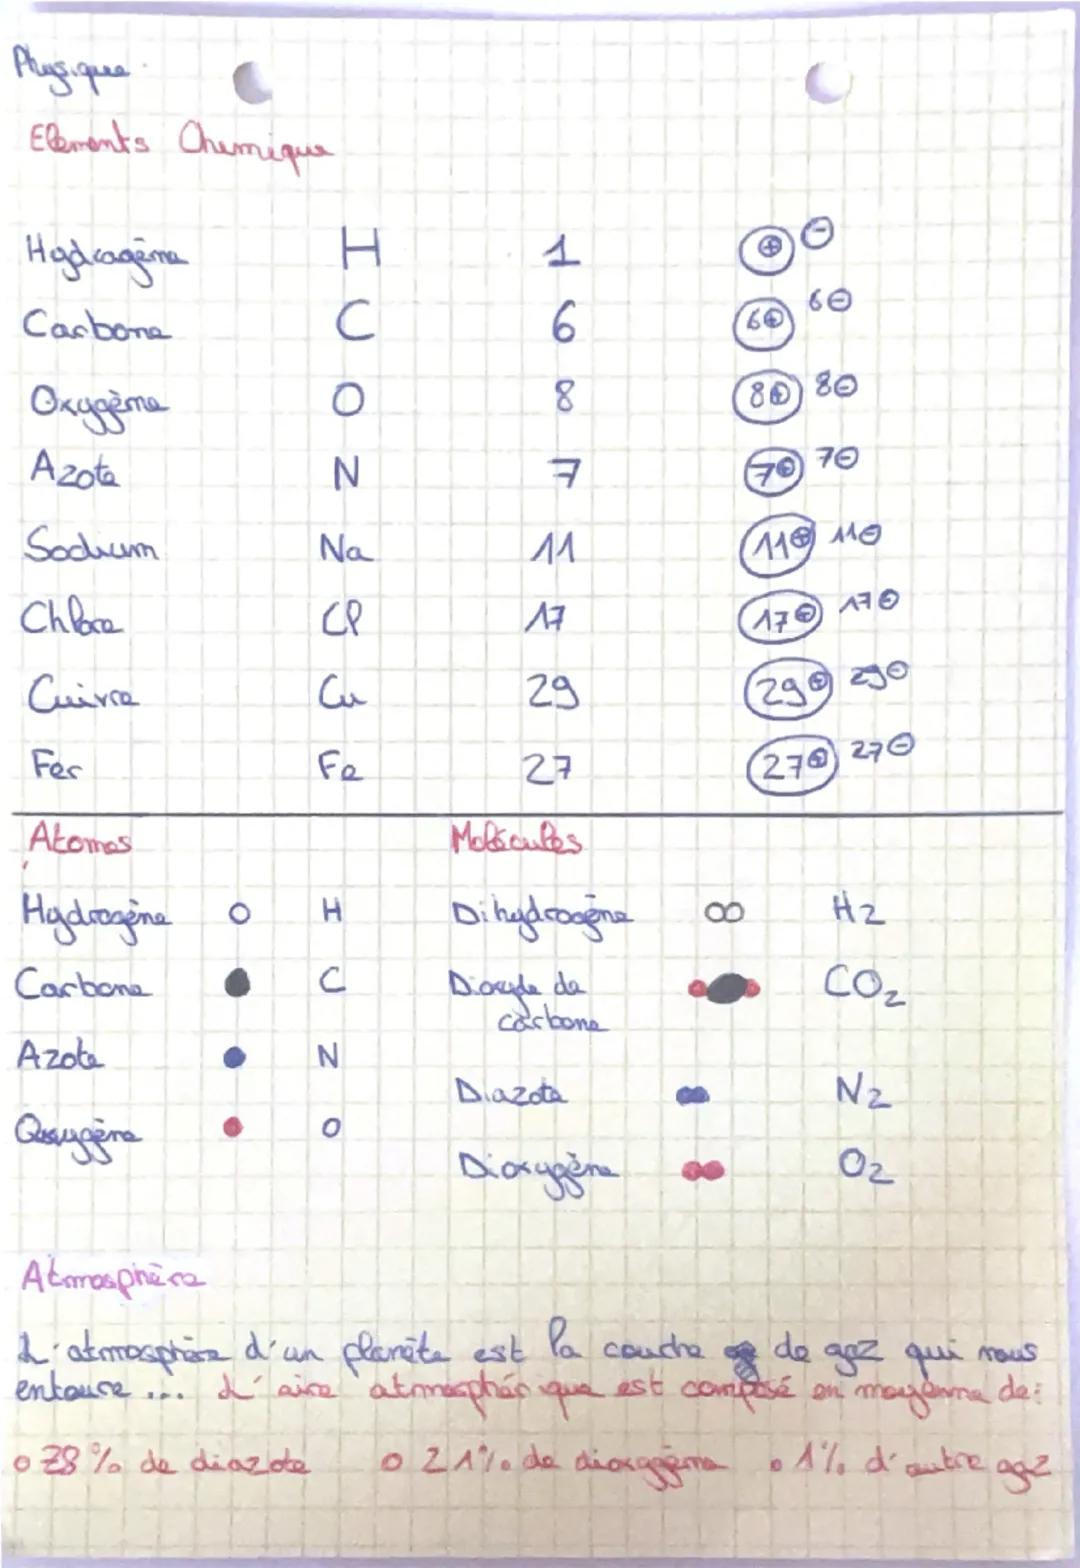 Physique
Elements Chemique
Hydragène H 1 ⊕ ⊖
Carbone C 6 6⊕ 6⊖
Oxygène O 8 8⊕ 8⊖
Azote N 7 7⊕ 7⊖
Sodium Na 11 11⊕ 11⊖
Chlore Cl 17 17⊕ 17⊖
Cuivre Cu 29 29⊕ 29⊖
Fer Fe 27 27⊕ 27⊖
Atomes Molécules
Hydrogène H Dihydrogène H2
Carbone C Dioxyde de carbone CO2
Azote N Diazote N2
Oxygène O Dioxygène O2
Atmosphère
L'atmosphère d'un planète est la couche de gaz qui nous
entoure ... L'aire atmosphérique est composé en moyenne de:
o 78% de diazote o 21% de dioxygène o 1% d'autre gaz